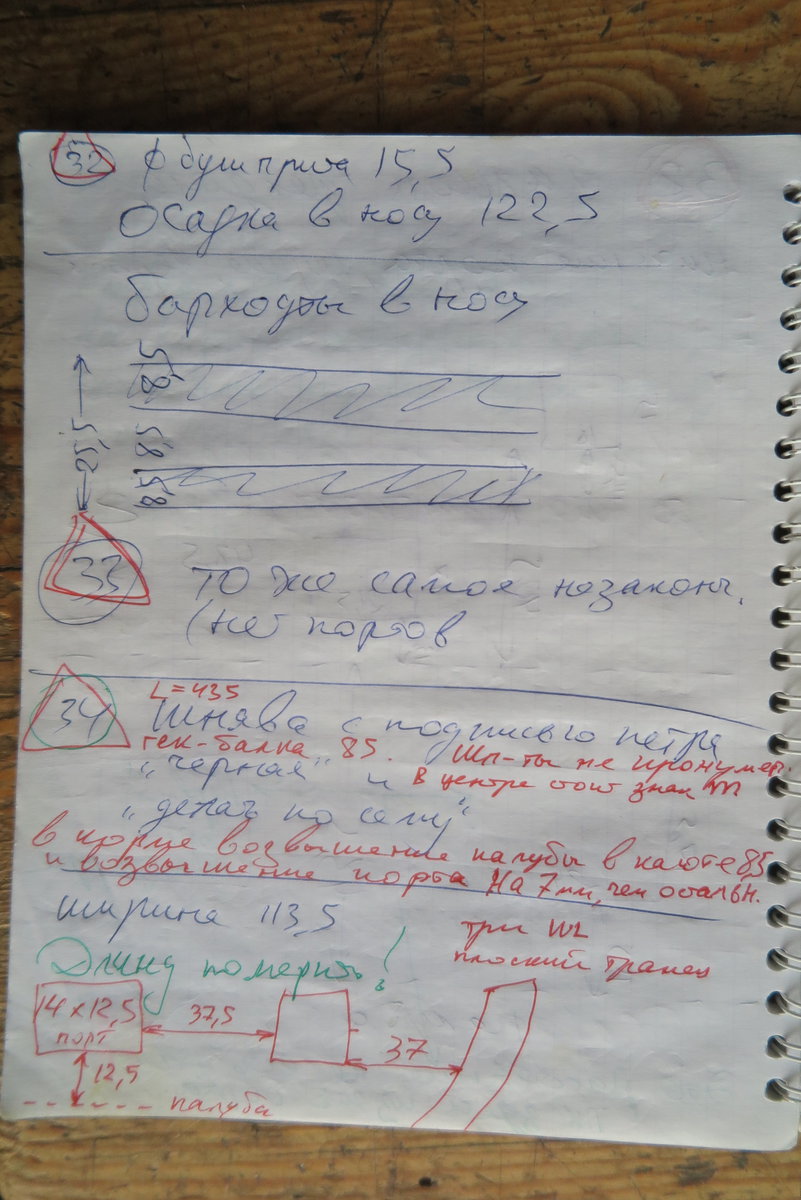 32 ф бушприта 15,5
Осадка в носу 122,5
Бархоуты в носу
8,5
25,5
8,5
8,5
33 то же самое, незаконч.
(нет портов
L=435
34 Шнява с подписью петра
гек-балка 85. Шп-ты не пронумер.
"черная" и в центре стоит знак
"делать по сему"
в корме возвышение палубы в каюте 8,5
и возвышение порта на 7 мм, чем остальн.
ширина 113,5
три WL
плоский транец
Длину померить!
14 x 12,5
порт
37,5
37
12,5
палуба